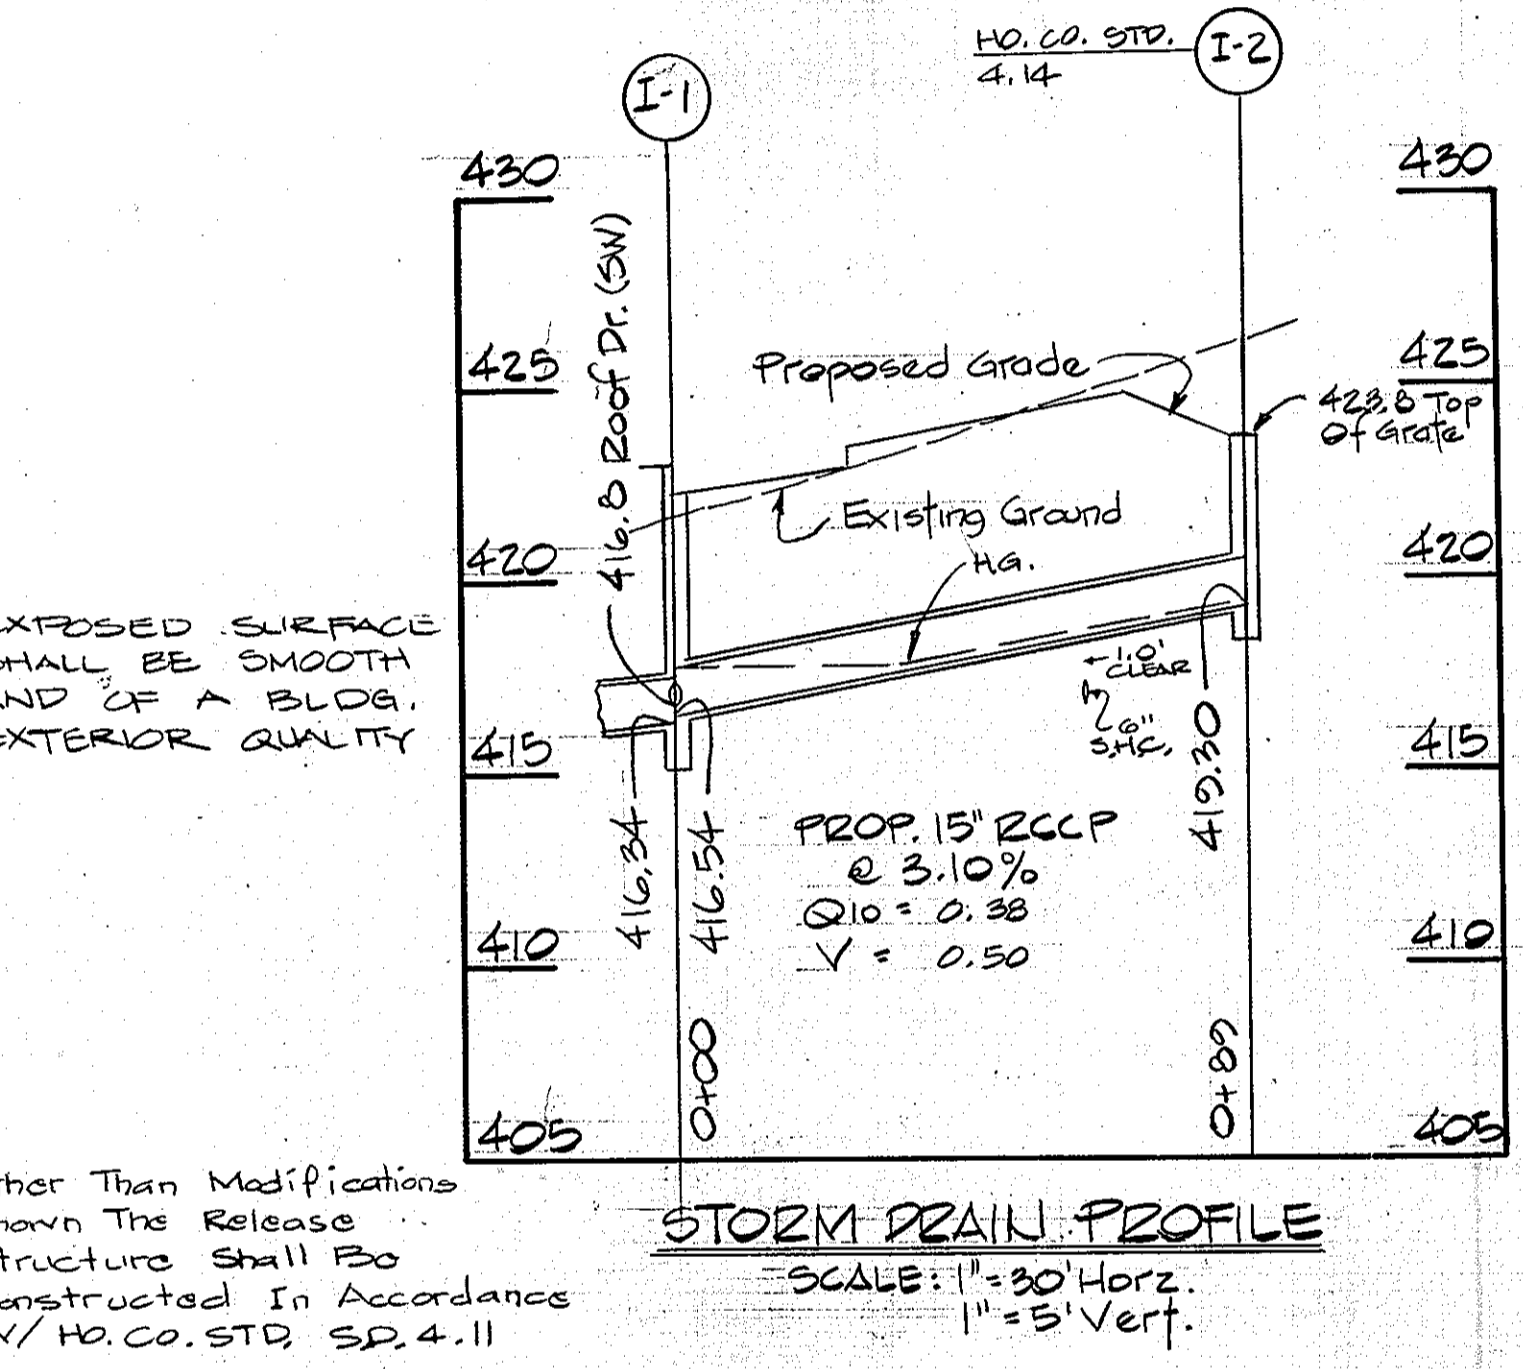 HO. CO. STD.
4.14
I-2
I-1
430
430
425
425
420
420
415
415
410
410
405
405
416.8 Roof Dr. (SW)
Proposed Grade
423.8 Top
Of Grate
Existing Ground
H.G.
1.0'
CLEAR
6"
S.H.C.
416.34
416.54
419.30
PROP. 15" RCCP
@ 3.10%
Q10 = 0.38
V = 0.50
0+00
0+89
EXPOSED SURFACE
SHALL BE SMOOTH
AND OF A BLDG.
EXTERIOR QUALITY
ther Than Modifications
hown The Release
tructure Shall Be
onstructed In Accordance
W/ HO. CO. STD. S.D. 4.11
STORM DRAIN PROFILE
SCALE: 1" = 30' Horz.
1" = 5' Vert.